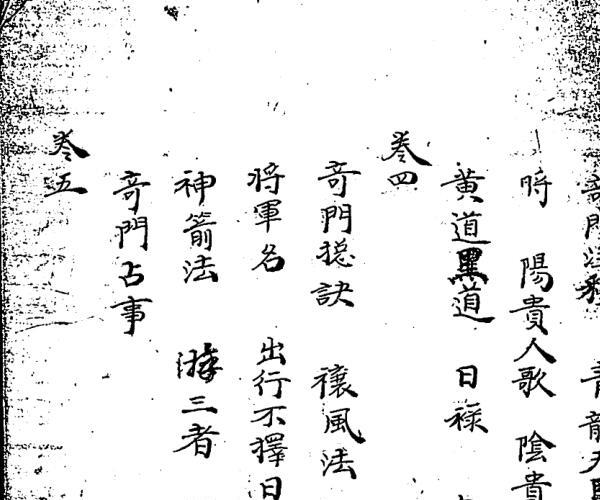 奇門 青龍
時 陽貴人歌 陰貴
黃道黑道 日祿
卷四
奇門 訣 禳風法
將軍名 出行不擇日
神箭法 三者
奇門占事
卷五